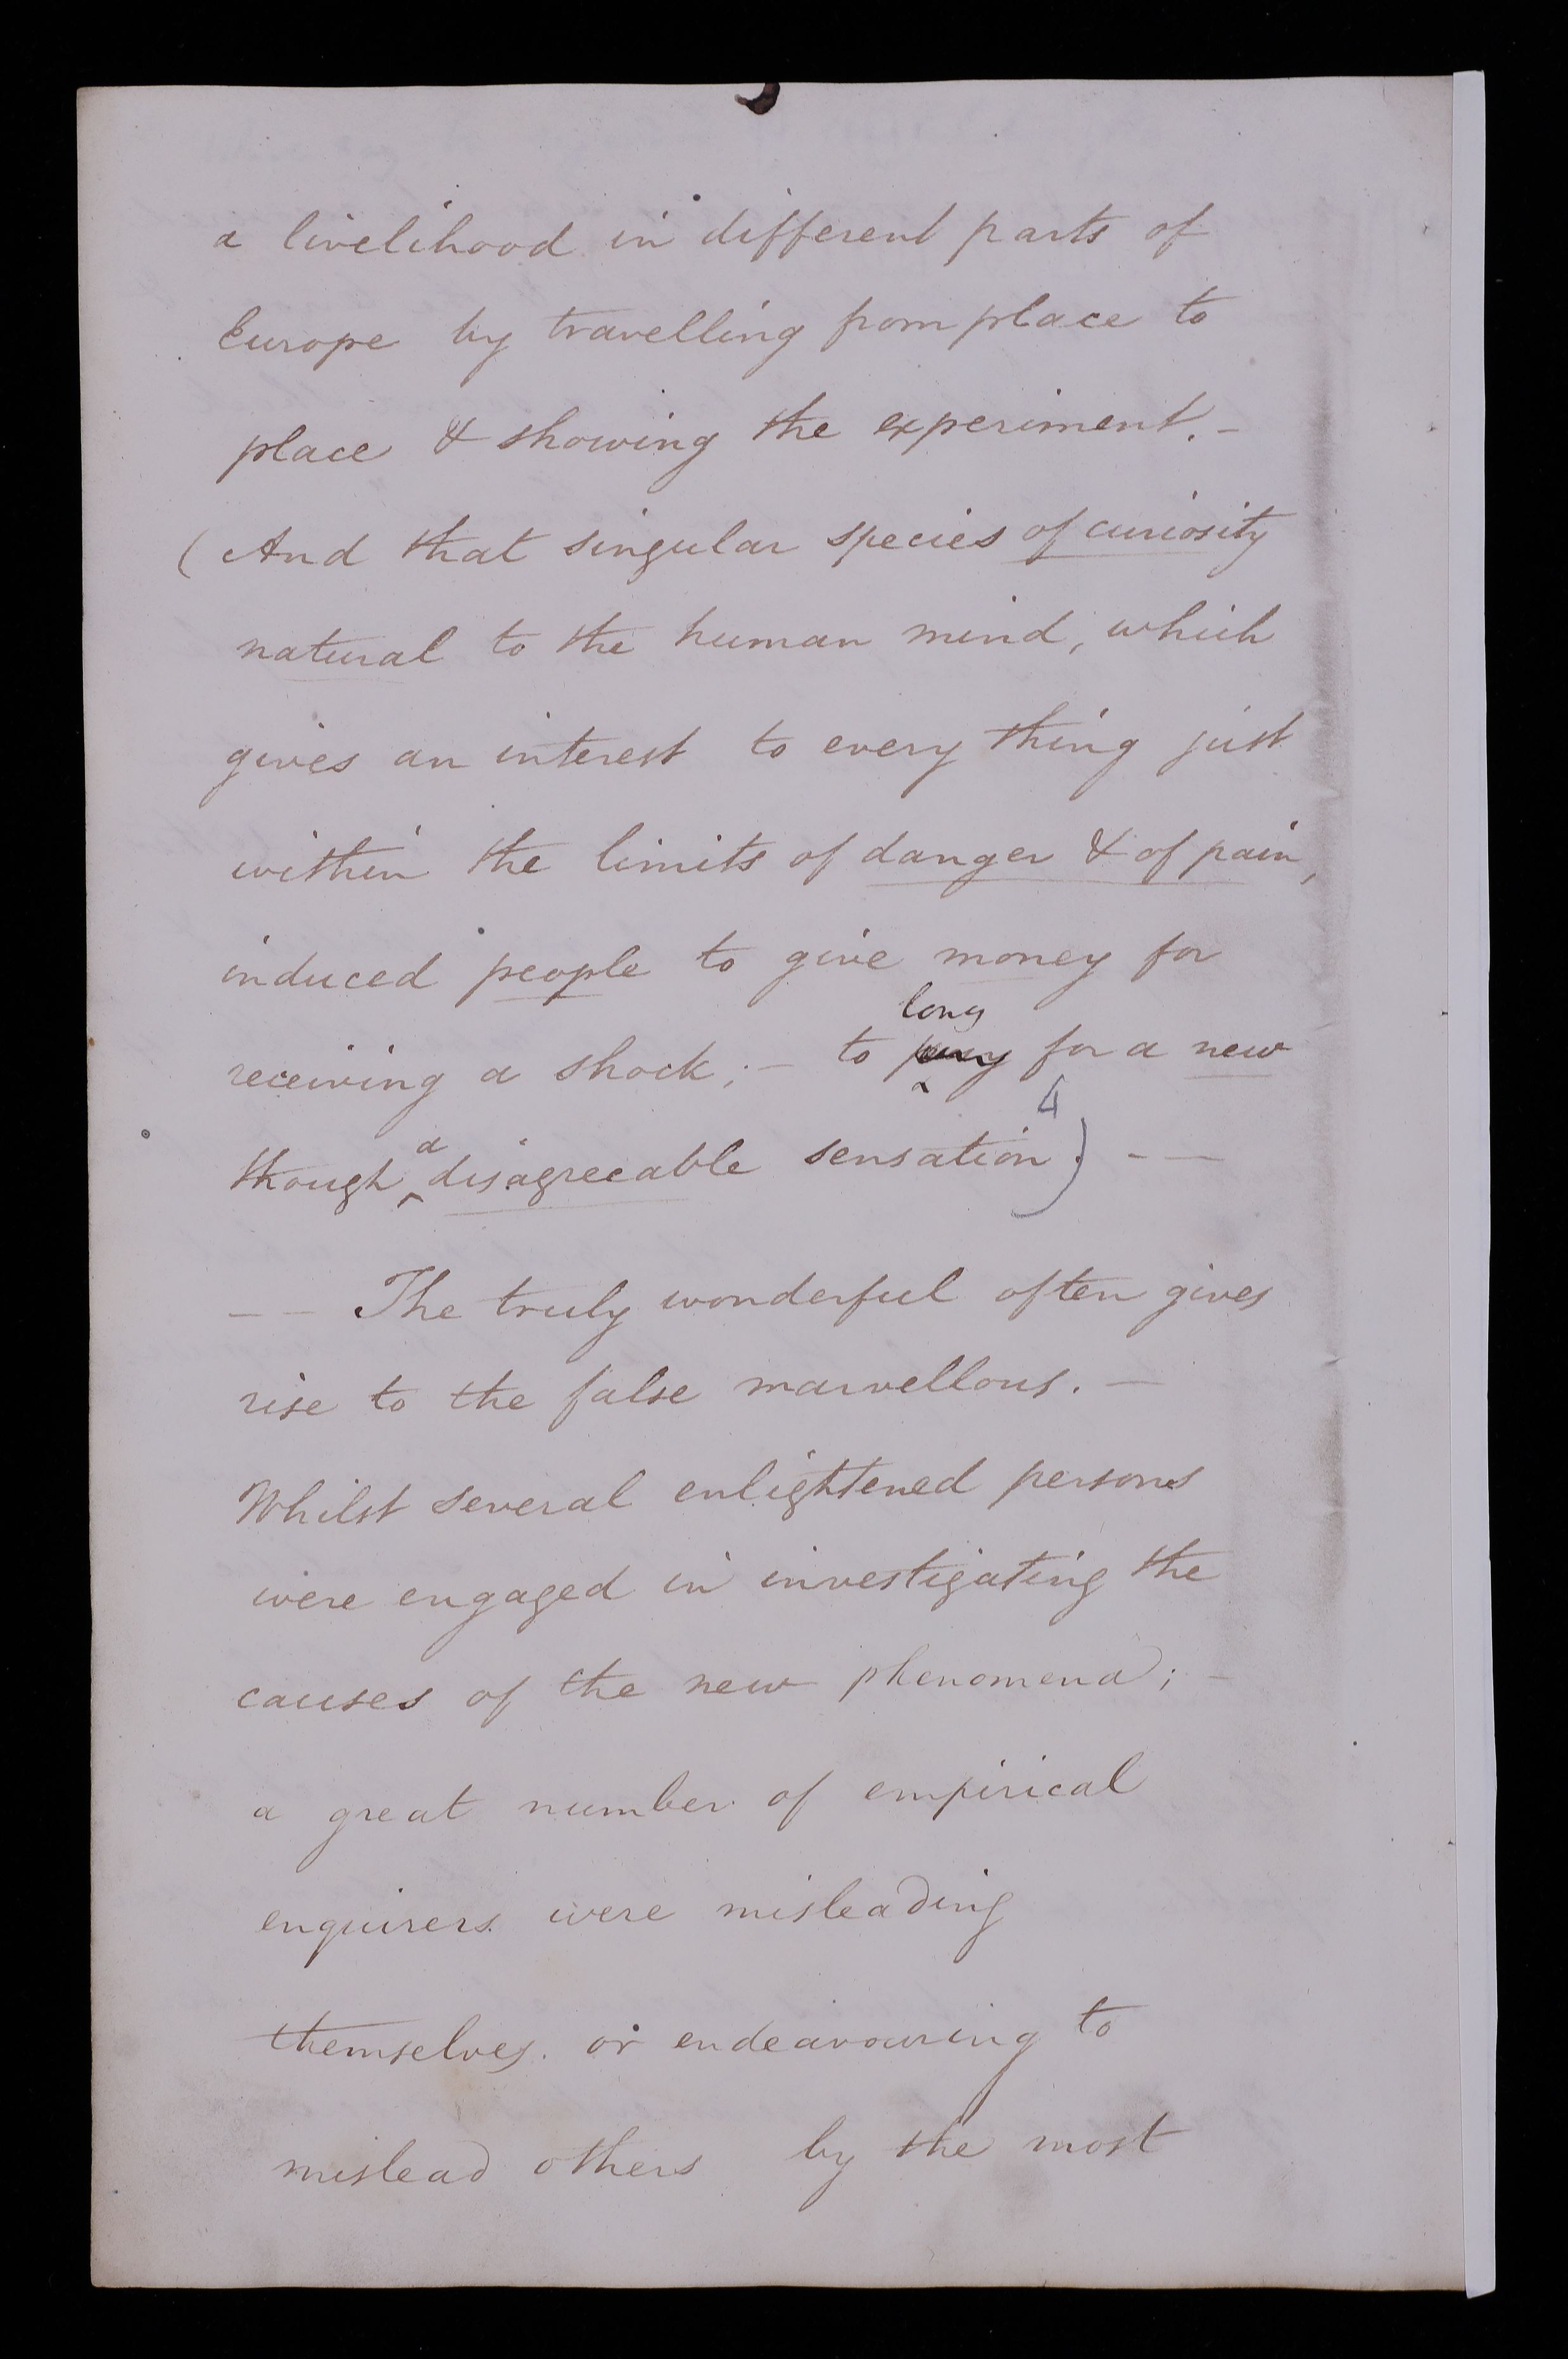 a livelihood in different parts of
Europe by travelling from place to
place & showing the experiment. –
(And that singular species of curiosity
natural to the human mind, which
gives an interest to every thing just
within the limits of danger & of pain,
induced people to give money for
long
receiving a shock; – to pay for a new
4
a
though disagreeable sensation.) – –
– – The truly wonderful often gives
rise to the false marvellous. –
Whilst several enlightened persons
were engaged in investigating the
causes of the new phenomena; –
a great number of empirical
enquirers were misleading
themselves. or endeavouring to
mislead others by the most